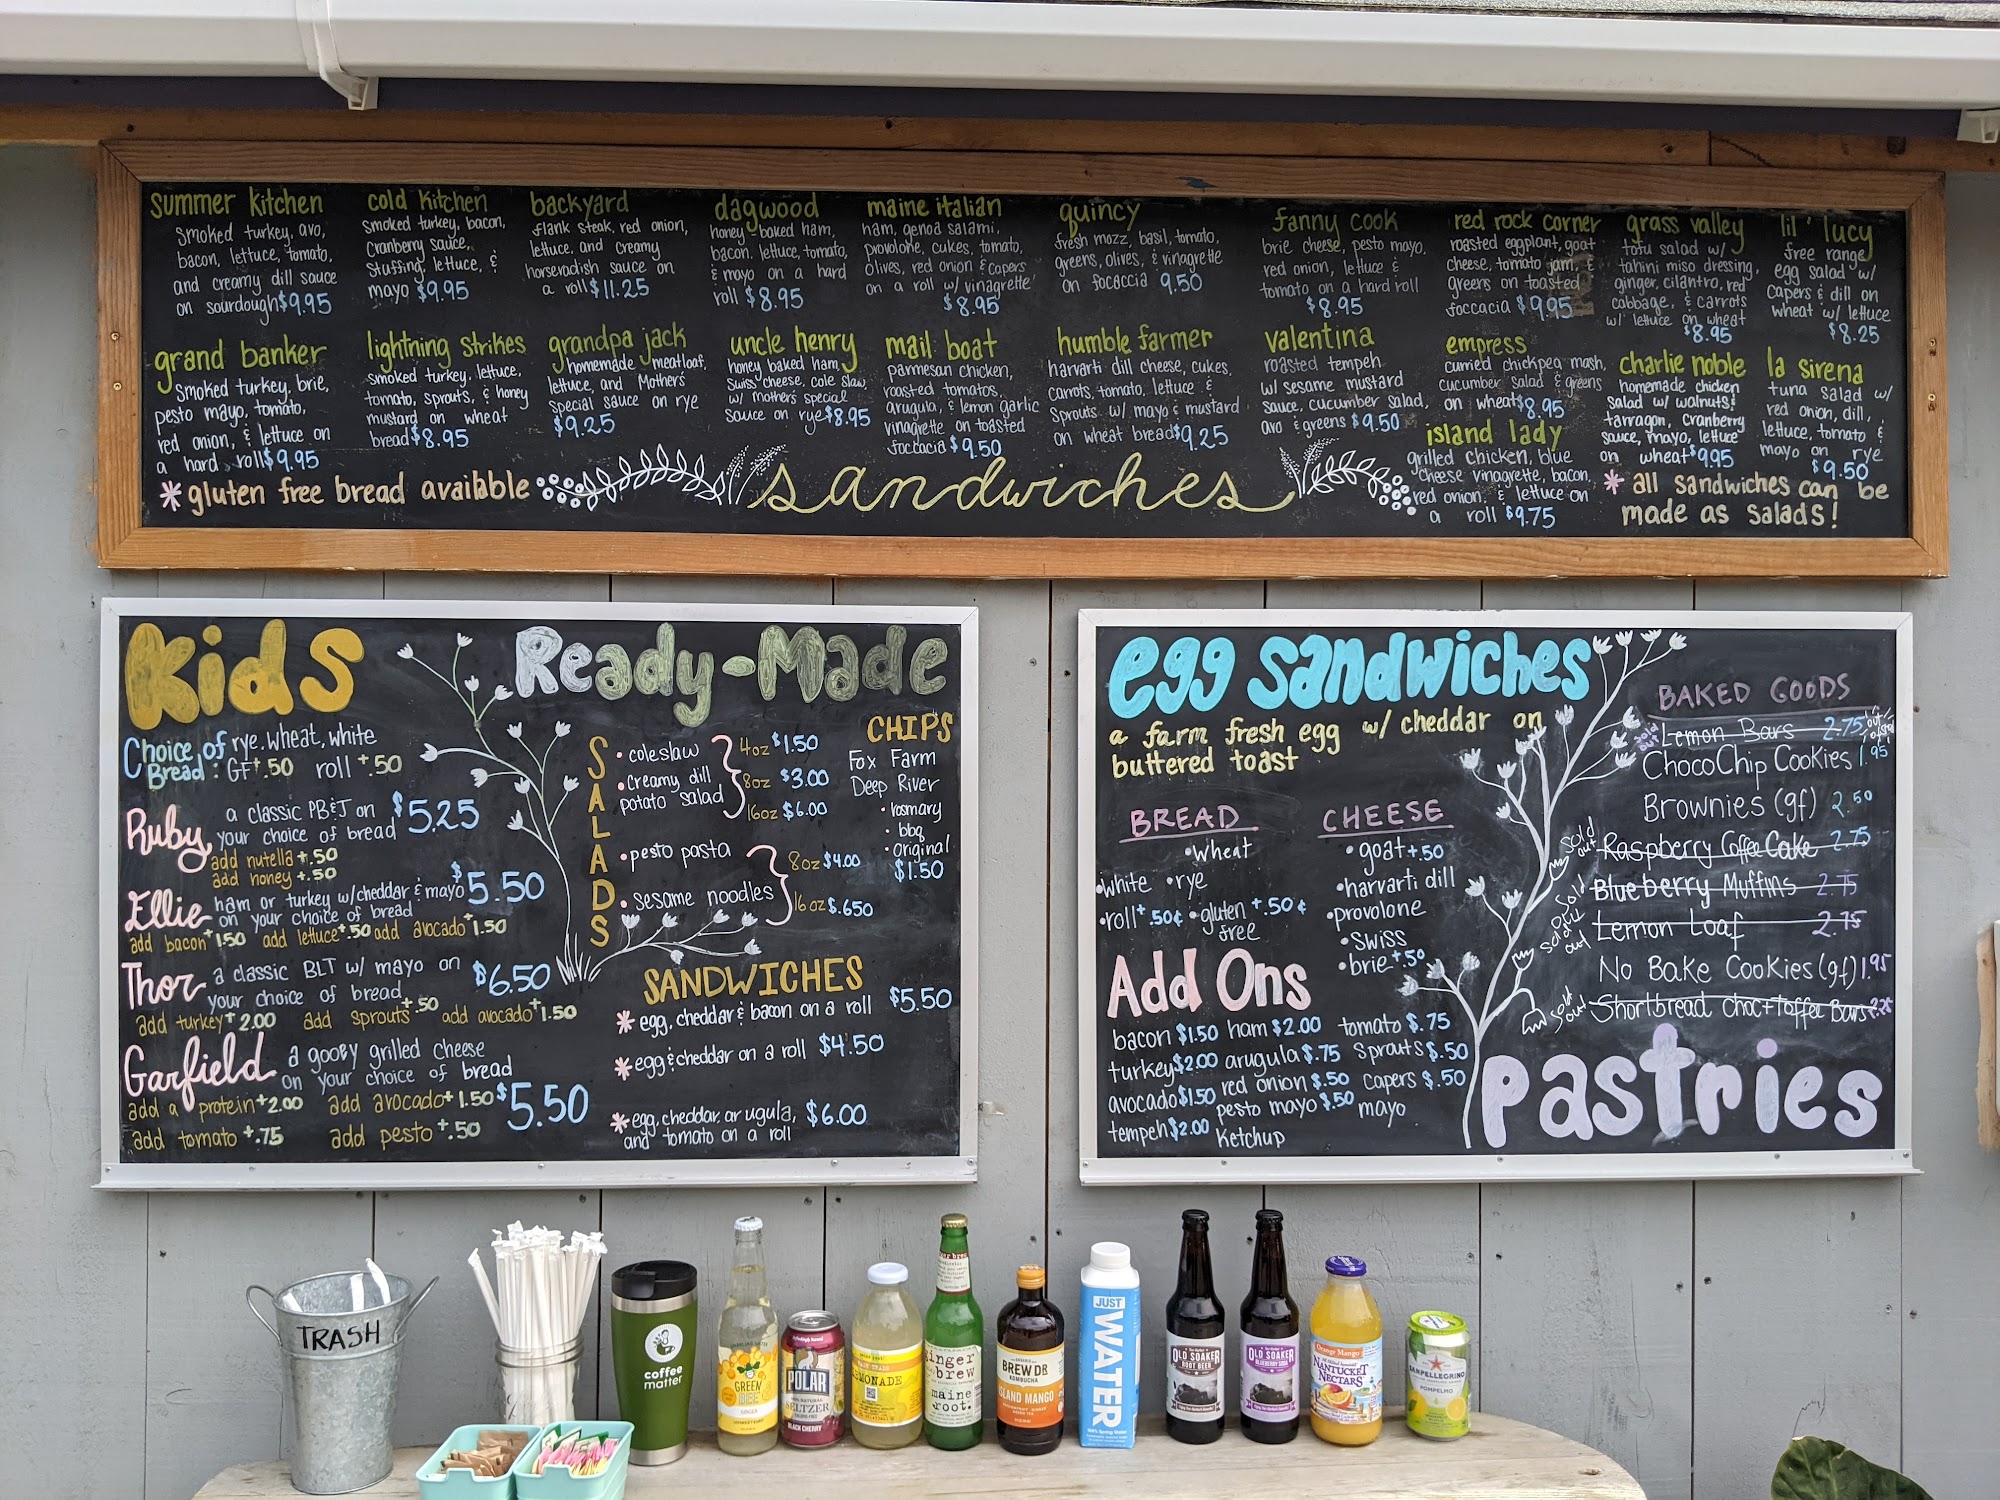 summer kitchen
smoked turkey, avo,
bacon, lettuce, tomato,
and creamy dill sauce
on sourdough $9.95
cold kitchen
smoked turkey, bacon,
cranberry sauce,
stuffing, lettuce, &
mayo $9.95
backyard
flank steak, red onion,
lettuce, and creamy
horseradish sauce on
a roll $11.25
dagwood
honey baked ham,
bacon, lettuce, tomato,
& mayo on a hard
roll $8.95
maine italian
ham, genoa salami,
provolone, cukes, tomato,
olives, red onion & capers
on a roll w/ vinagrette
$8.95
quincy
fresh mozz, basil, tomato,
greens, olives, & vinagrette
on focaccia 9.50
fanny cook
brie cheese, pesto mayo,
red onion, lettuce &
tomato on a hard roll
$8.95
red rock corner
roasted eggplant, goat
cheese, tomato jam, &
greens on toasted
foccacia $9.95
grass valley
tofu salad w/
tahini miso dressing,
ginger, cilantro, red
cabbage, & carrots
w/ lettuce on wheat
$8.95
lil' lucy
free range
egg salad w/
capers & dill on
wheat w/ lettuce
$8.25
grand banker
smoked turkey, brie,
pesto mayo, tomato,
red onion, & lettuce on
a hard roll $9.95
lightning strikes
smoked turkey, lettuce,
tomato, sprouts, & honey
mustard on wheat
bread $8.95
grandpa jack
homemade meatloaf,
lettuce, and Mother's
special sauce on rye
$9.25
uncle henry
honey baked ham,
swiss cheese, cole slaw,
w/ mother's special
sauce on rye $8.95
mail boat
parmesan chicken,
roasted tomatos,
arugula, & lemon garlic
vinagrette on toasted
foccacia $9.50
humble farmer
harvarti dill cheese, cukes,
carrots, tomato, lettuce &
sprouts w/ mayo & mustard
on wheat bread $9.25
valentina
roasted tempeh
w/ sesame mustard
sauce, cucumber salad,
avo & greens $9.50
empress
curried chickpea mash,
cucumber salad & greens
on wheat $8.95
island lady
grilled chicken, blue
cheese vinagrette, bacon,
red onion, & lettuce on
a roll $9.75
charlie noble
homemade chicken
salad w/ walnuts,
tarragon, cranberry
sauce, mayo, lettuce
on wheat $9.95
la sirena
tuna salad w/
red onion, dill,
lettuce, tomato &
mayo on rye
$9.50
* gluten free bread available
sandwiches
* all sandwiches can be
made as salads!
Kids
Choice of rye, wheat, white
Bread: GF+.50 roll +.50
Ruby a classic PB&J on
your choice of bread $5.25
add nutella +.50
add honey +.50
Ellie ham or turkey w/cheddar & mayo $5.50
on your choice of bread
add bacon +1.50 add lettuce +.50 add avocado +1.50
Thor a classic BLT w/ mayo on
your choice of bread $6.50
add turkey +2.00 add sprouts +.50 add avocado +1.50
Garfield a gooey grilled cheese
on your choice of bread $5.50
add a protein +2.00 add avocado +1.50
add tomato +.75 add pesto +.50
Ready-Made
SALADS
• coleslaw
• creamy dill
potato salad
4oz $1.50
8oz $3.00
16oz $6.00
• pesto pasta
• sesame noodles
8oz $4.00
16oz $.650
CHIPS
Fox Farm
Deep River
• rosmary
• bbq
• original
$1.50
SANDWICHES
* egg, cheddar & bacon on a roll $5.50
* egg & cheddar on a roll $4.50
* egg, cheddar, arugula, $6.00
and tomato on a roll
egg sandwiches
a farm fresh egg w/ cheddar on
buttered toast
BREAD
• wheat
• white • rye
• roll +.50¢ • gluten +.50¢
free
CHEESE
• goat +.50
• harvarti dill
• provolone
• swiss
• brie +.50
Add Ons
bacon $1.50 ham $2.00 tomato $.75
turkey $2.00 arugula $.75 sprouts $.50
avocado $1.50 red onion $.50 capers $.50
tempeh $2.00 pesto mayo $.50 mayo
ketchup
BAKED GOODS
sold out Lemon Bars 2.75
ChocoChip Cookies 1.95
Brownies (gf) 2.50
sold out Raspberry Coffee Cake 2.75
sold out Blueberry Muffins 2.75
sold out Lemon Loaf 2.75
No Bake Cookies (gf) 1.95
sold out Shortbread choc+toffee Bars 2.25
pastries
TRASH
coffee
matter
GREEN
BEE
GINGER
POLAR
SELTZER
BLACK CHERRY
LEMONADE
ginger
brew
maine
root.
BREW DR
KOMBUCHA
ISLAND MANGO
JUST
WATER
100% Spring Water
OLD SOAKER
ROOT BEER
OLD SOAKER
BLUEBERRY SODA
Orange Mango
NANTUCKET
NECTARS
SANPELLEGRINO
POMPELMO